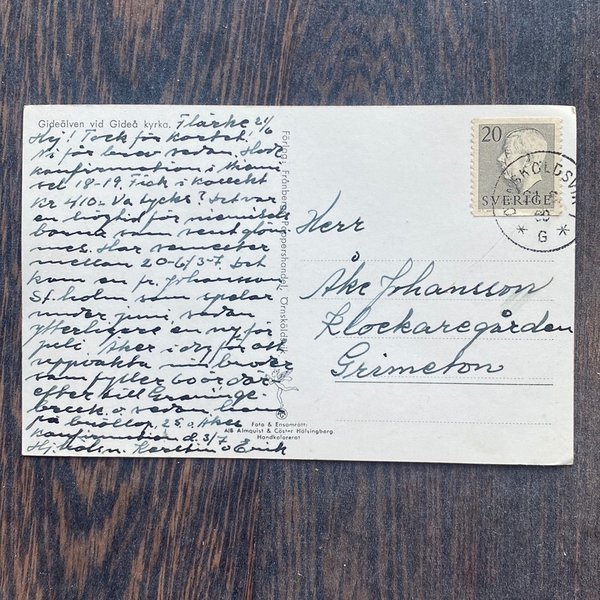 Gideälven vid Gideå kyrka. Flärke 21/6
Hej! Tack för kortet.
Ni får brev sedan. Hade
konfirmation i
18-19. Fick i kollekt
kr 410:- Va tycks? Det var
en högtid för
barna som sent glöm-
mes. Har semester
mellan 20-6/3-7. Det
kom en fr. Johansson
St.holm som spelar
under juni sedan
ytterligare en ny för
juli. Åker i dag för att
uppvakta min broder
som fyller 60 år där-
efter till Graninge-
o. sedan
på bröllop 25. o. åker
konfirmation d. 3/7
Hj. häln. Karolin o Erik
Förlag: Frånbergs Pappershandel, Örnsköldsvik
Foto & Ensamrätt:
A/B Almquist & Cöster Hälsingborg.
Handkolorerat
20
SVERIGE
ÖRNSKÖLDSVIK
G
Herr
Åke Johansson
Klockaregården
Grimeton